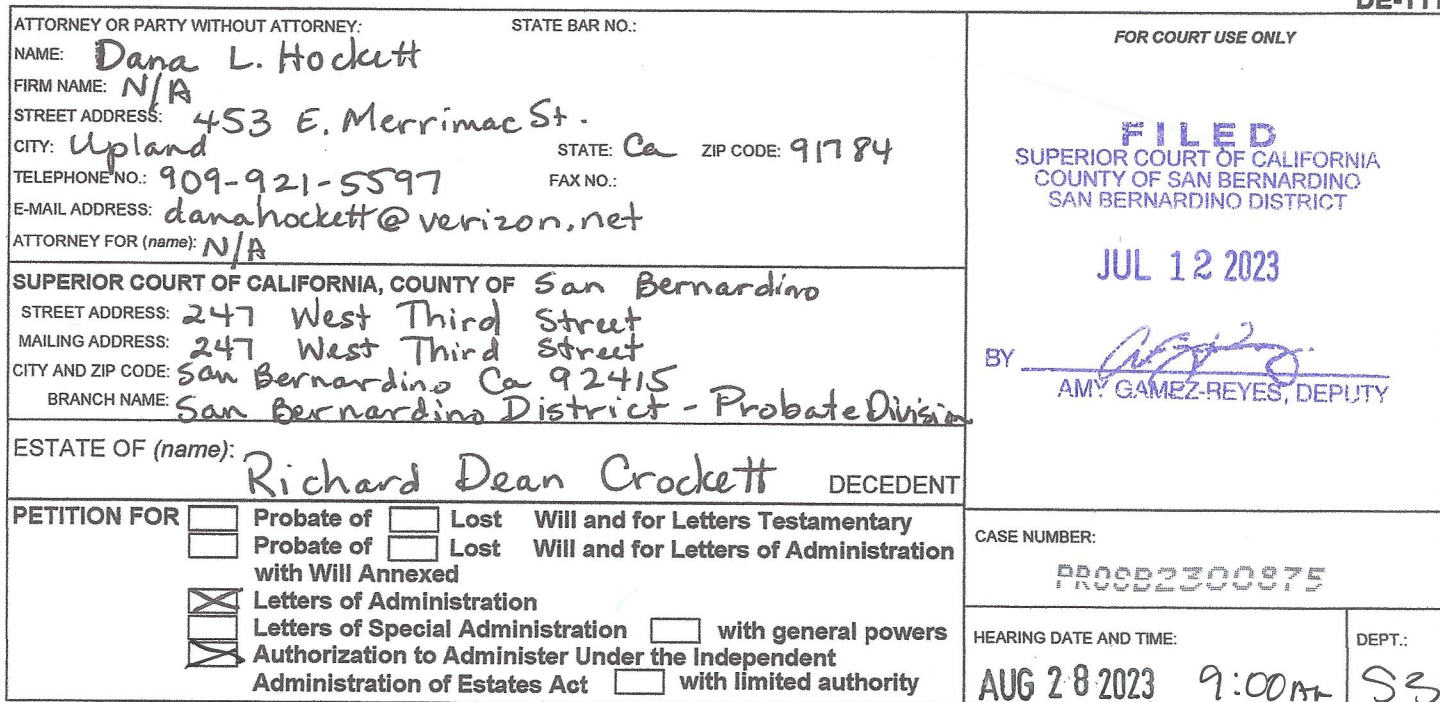 DE-111
ATTORNEY OR PARTY WITHOUT ATTORNEY: STATE BAR NO.:
NAME: Dana L. Hockett
FIRM NAME: N/A
STREET ADDRESS: 453 E. Merrimac St.
CITY: Upland STATE: Ca ZIP CODE: 91784
TELEPHONE NO.: 909-921-5597 FAX NO.:
E-MAIL ADDRESS: danahockett@verizon.net
ATTORNEY FOR (name): N/A
SUPERIOR COURT OF CALIFORNIA, COUNTY OF San Bernardino
STREET ADDRESS: 247 West Third Street
MAILING ADDRESS: 247 West Third Street
CITY AND ZIP CODE: San Bernardino Ca 92415
BRANCH NAME: San Bernardino District - Probate Division
ESTATE OF (name): Richard Dean Crockett DECEDENT
PETITION FOR Probate of Lost Will and for Letters Testamentary
Probate of Lost Will and for Letters of Administration
with Will Annexed
Letters of Administration
Letters of Special Administration with general powers
Authorization to Administer Under the Independent
Administration of Estates Act with limited authority
FOR COURT USE ONLY
FILED
SUPERIOR COURT OF CALIFORNIA
COUNTY OF SAN BERNARDINO
SAN BERNARDINO DISTRICT
JUL 12 2023
BY
AMY GAMEZ-REYES, DEPUTY
CASE NUMBER:
PROSB2300875
HEARING DATE AND TIME: DEPT.:
AUG 28 2023 9:00AM S3